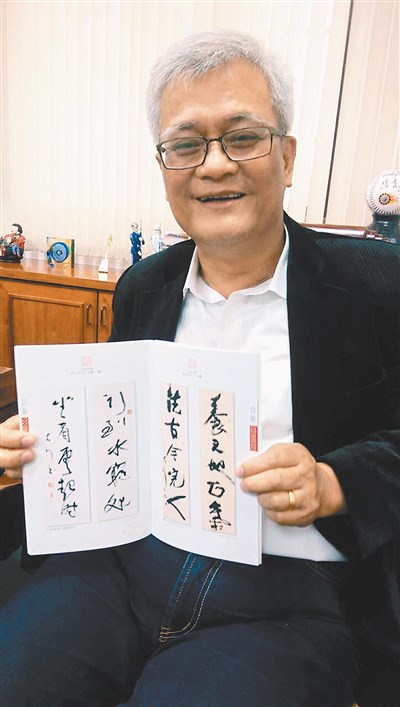 養天地正氣
法古今完人
行到水窮處
坐看雲起時